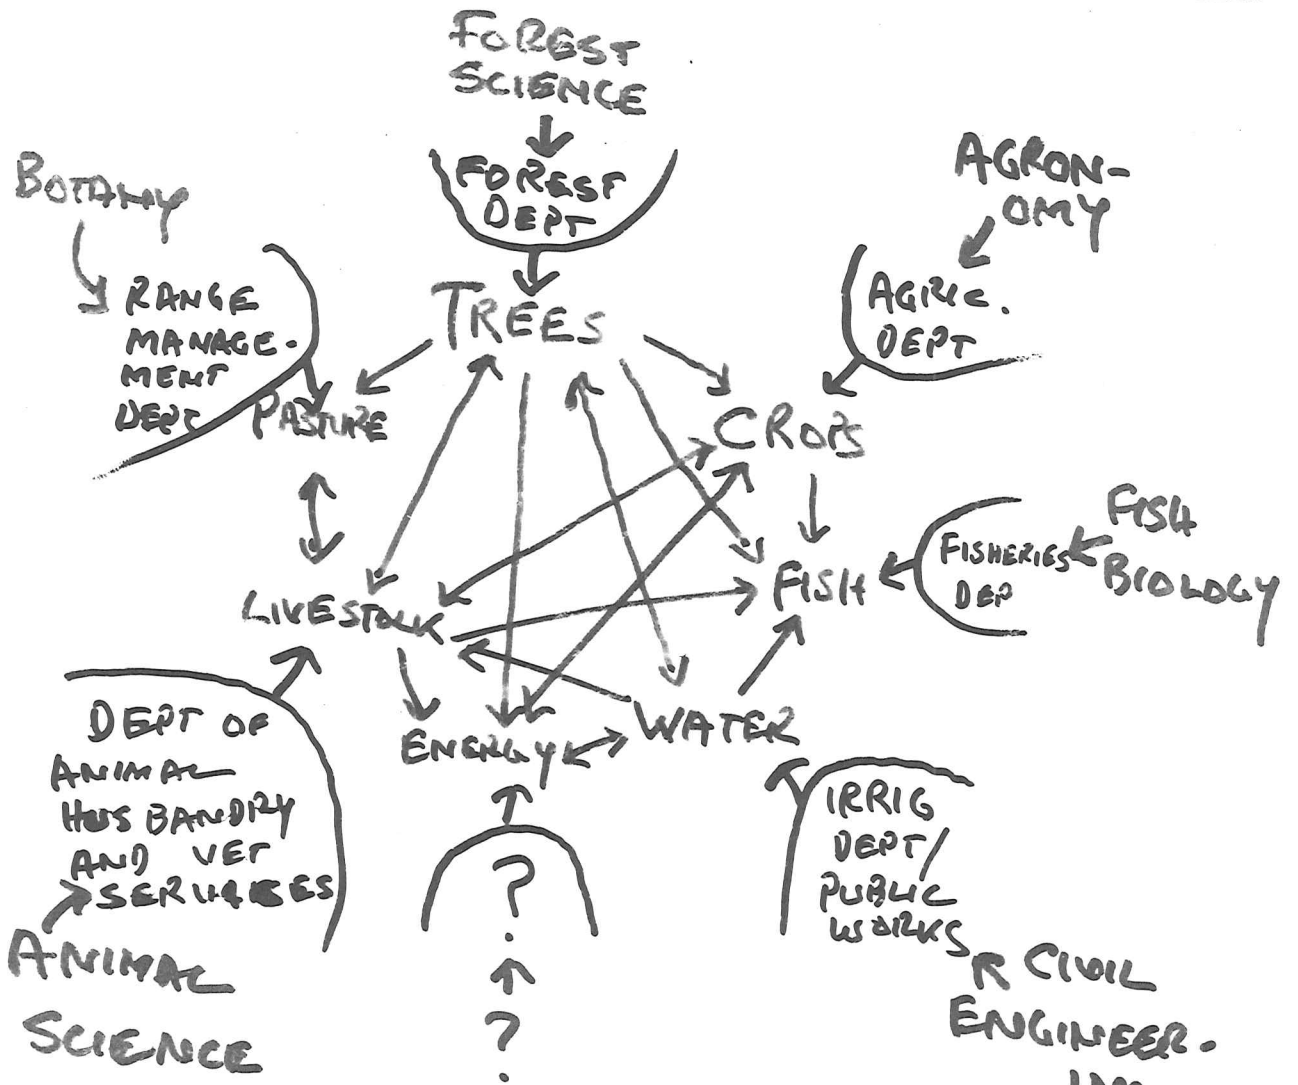 FOREST
SCIENCE
FOREST
DEPT
BOTANY
RANGE
MANAGE-
MENT
DEPT
AGRON-
OMY
AGRIC.
DEPT
TREES
PASTURE
CROPS
FISH
BIOLOGY
FISHERIES
DEP
FISH
LIVESTOCK
ENERGY
WATER
DEPT OF
ANIMAL
HUSBANDRY
AND VET
SERVICES
ANIMAL
SCIENCE
?
?
IRRIG
DEPT/
PUBLIC
WORKS
CIVIL
ENGINEER-